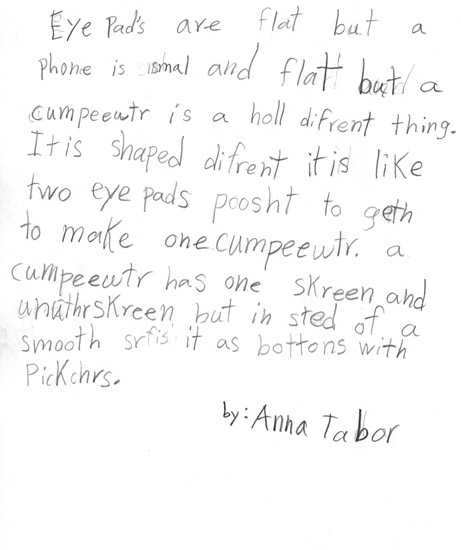 Eye Pad's are flat but a
phone is smal and flatt but a
cumpeewtr is a holl difrent thing.
It is shaped difrent it is like
two eye pads poosht to geth
to make one cumpeewtr. a
cumpeewtr has one skreen and
unuthr skreen but in sted of a
smooth srfis it as bottons with
Pickchrs.
by: Anna Tabor